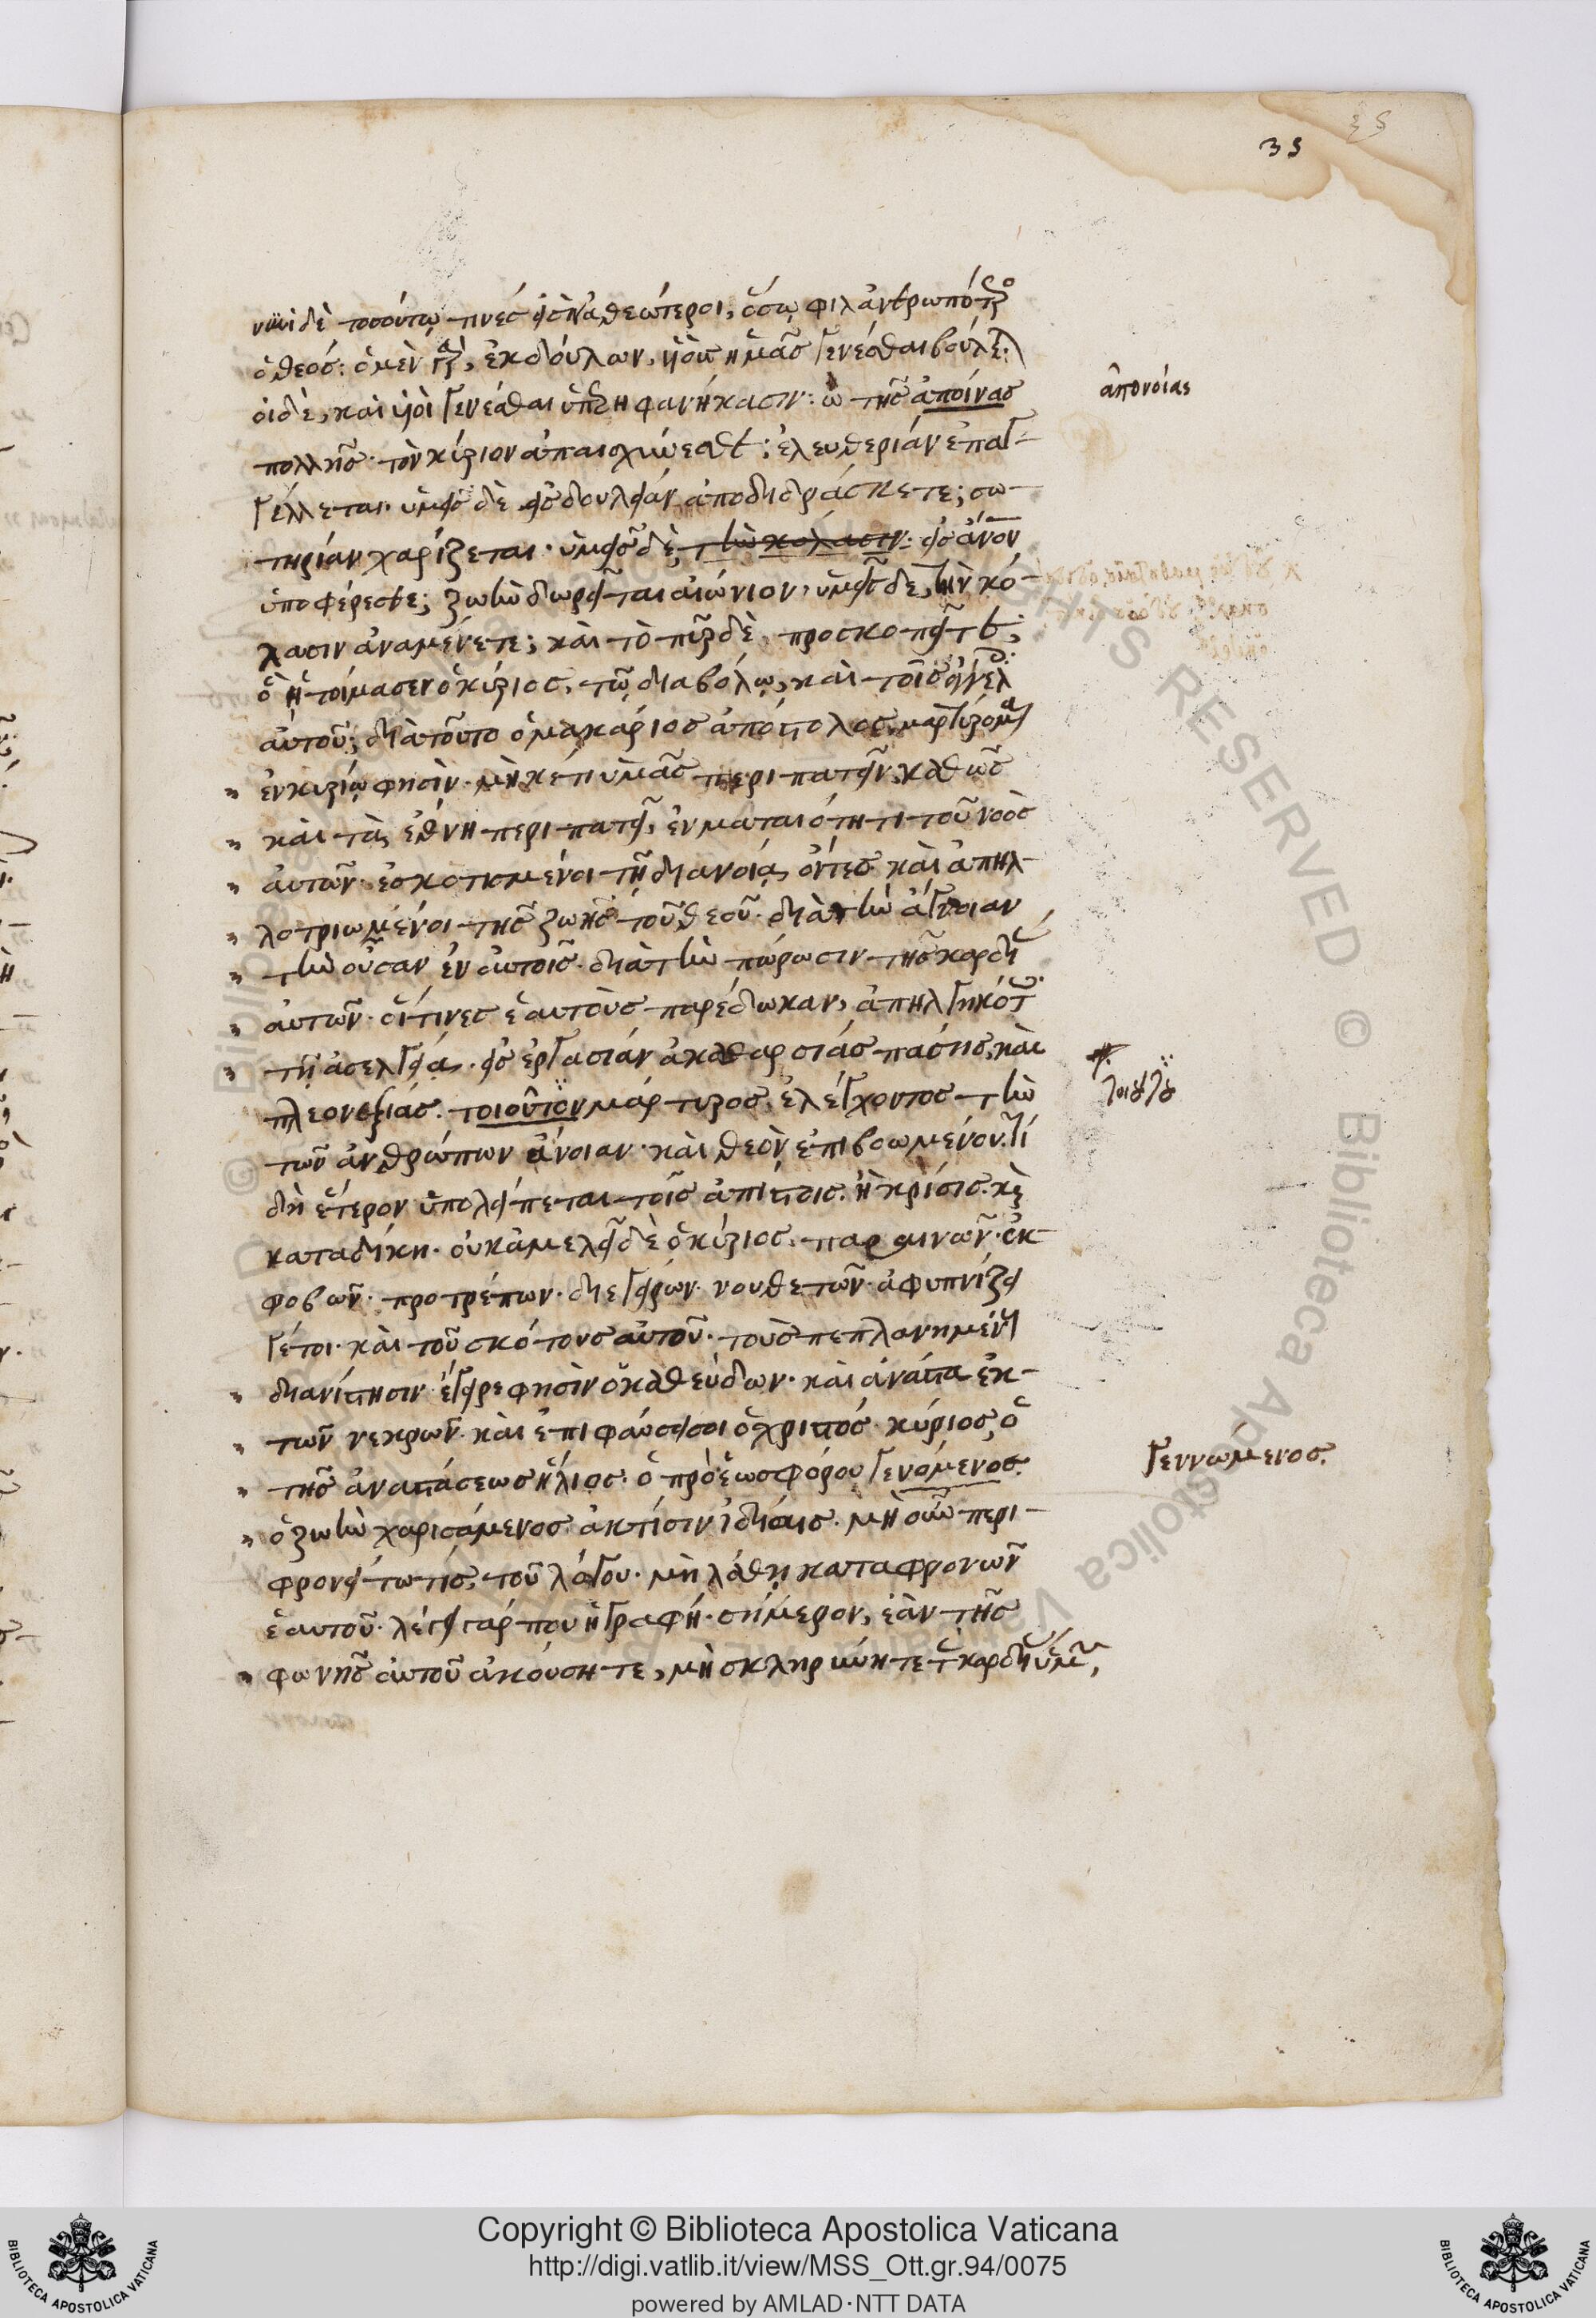 35
νυνὶ δὲ τοσούτῳ τινές εἰσὶν ἀθεώτεροι, ὅσῳ φιλανθρωπότερος
ὁ θεός: ὁ μὲν γὰρ, ἐκ δούλων, υἱοὺς ἡμᾶς γενέσθαι βούλεται
οἱ δὲ, καὶ υἱοὶ γενέσθαι ὑπερηφανήκασιν: ὢ τῆς ἀποίνας
ἀπονοίας
πολλῆς· τὸν κύριον ἀπαισχύνεσθε; ἐλευθερίαν ἐπαγ-
γέλλεται· ὑμεῖς δὲ εἰς δουλείαν ἀποδιδράσκετε; σω-
τηρίαν χαρίζεται· ὑμεῖς δὲ, τὴν κόλασιν: εἰς ἄνον
ὑποφέρεσθε; ζωὴν δωρεῖται αἰώνιον· ὑμεῖς δὲ, τὴν κό-
λασιν ἀναμένετε; καὶ τὸ πῦρ δὲ, προσκοπεῖτε;
ὃ ἡτοίμασεν ὁ κύριος, τῷ διαβόλῳ, καὶ τοῖς ἀγγέλοις
αὐτοῦ; διὰ τοῦτο ὁ μακάριος ἀπόστολος, μαρτύρομαι
ἐν κυρίῳ φησὶν· μὴκέτι ὑμᾶς περιπατεῖν, καθὼς
καὶ τὰ ἔθνη περιπατεῖ, ἐν ματαιότητι τοῦ νοὸς
αὐτῶν· ἐσκοτισμένοι τῇ διανοίᾳ ὄντες καὶ ἀπηλ-
λοτριωμένοι τῆς ζωῆς τοῦ θεοῦ· διὰ τὴν ἄγνοιαν
τὴν οὖσαν ἐν αὐτοῖς· διὰ τὴν πώρωσιν τῆς καρδίας
αὐτῶν· οἵτινες ἑαυτοὺς παρέδωκαν, ἀπηλγηκότες
τῇ ἀσελγείᾳ· εἰς ἐργασίαν ἀκαθαρσίας πάσης, καὶ
πλεονεξίας. τοιοῦτον μάρτυρος, ἐλέγχοντος τὴν
τοιούτου
τῶν ἀνθρώπων ἄνοιαν· καὶ θεὸν ἐπιβοωμένου. τί
δὴ ἕτερον ὑπολείπεται τοῖς ἀπίστοις. ἢ κρίσις. καὶ
καταδίκη· οὐκ ἀμελεῖ δὲ ὁ κύριος. παραινῶν· ἐκ-
φοβῶν· προτρέπων· διεγείρων· νουθετῶν· ἀφυπνίζει
γέτοι· καὶ τοῦ σκότους αὐτοῦ· τοὺς πεπλανημένους
διανίστησιν· ἔγειρε φησὶν ὁ καθεύδων· καὶ ἀνάστα ἐκ-
τῶν νεκρῶν· καὶ ἐπιφαύσει σοι ὁ χριστός· κύριος, ὁ
τῆς ἀναστάσεως ἥλιος· ὁ πρὸ ἑωσφόρου γενόμενος.
γεννώμενος.
ὁ ζωὴν χαρισάμενος ἀκτίσιν ἰδίαις. μὴ οὖν περι-
φρονείτω τις, τοῦ λόγου· μὴ λάθῃ καταφρονῶν
ἑαυτοῦ· λέγει γάρ που ἡ γραφή· σήμερον, ἐὰν τῆς
φωνῆς αὐτοῦ ἀκούσητε, μὴ σκληρύνητε τὰς καρδίας ὑμῶν,
© Biblioteca Apostolica Vaticana
RIGHTS RESERVED
Copyright © Biblioteca Apostolica Vaticana
http://digi.vatlib.it/view/MSS_Ott.gr.94/0075
powered by AMLAD·NTT DATA
BIBLIOTECA APOSTOLICA VATICANA
BIBLIOTECA APOSTOLICA VATICANA